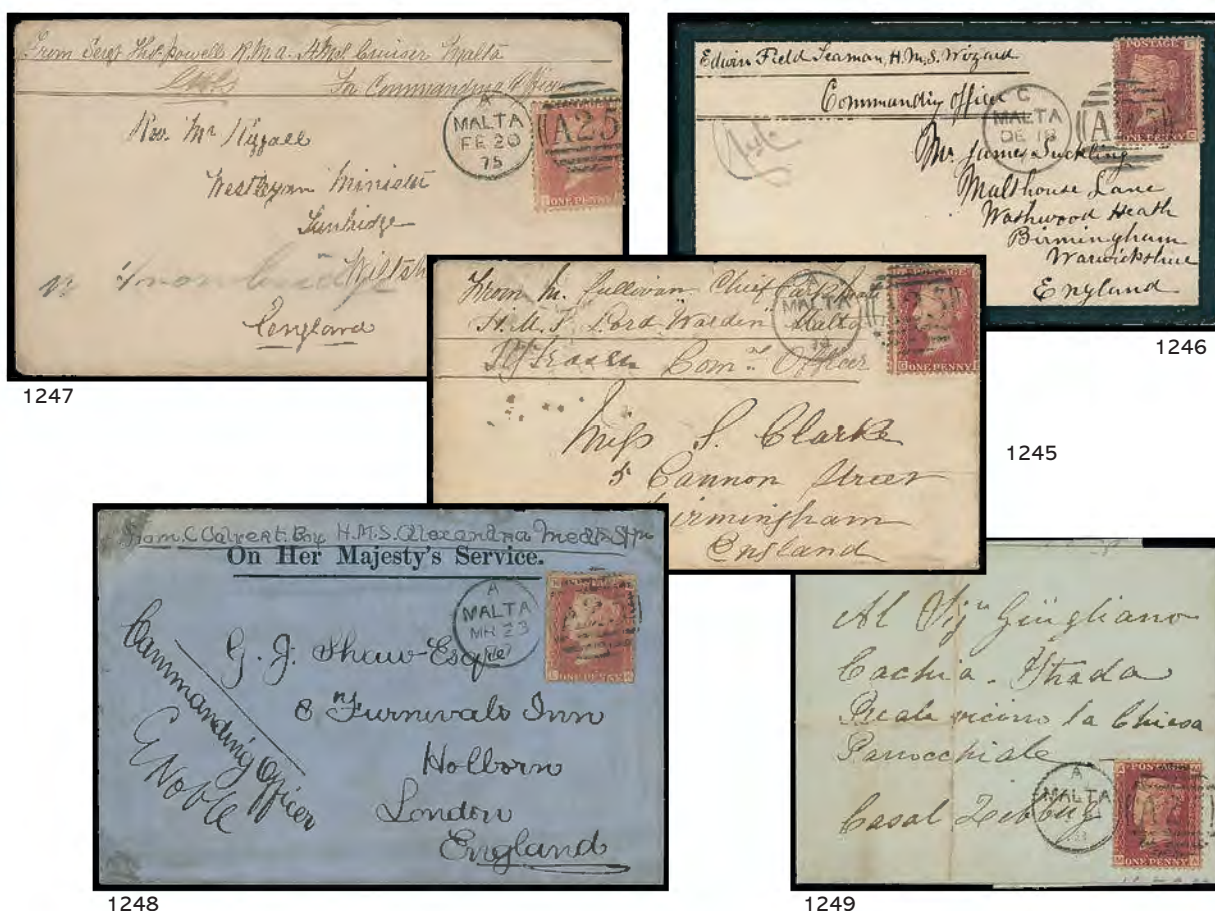 From Sergt Thos Powell R.M.A. H.M.S. Cruiser Malta
Commanding Officer
A
MALTA
FE 20
75
A25
ONE PENNY
Rev. Mr
Wesleyan Minister
Wiltsh
Trowbridge
England
1247
Edwin Field Seaman, H.M.S. Wizard
Commanding Officer
C
MALTA
DE 18
POSTAGE
ONE PENNY
Mr James Suckling
Malthouse Lane
Washwood Heath
Birmingham
Warwickshire
England
1246
From M. Sullivan Chief
H.M.S. "Lord Warden" Malta
Comg Officer
A
MALTA
ONE PENNY
Miss S. Clarke
5 Cannon Street
Birmingham
England
1245
From C Calvert. Boy H.M.S. Alexandra Medt. Stn
On Her Majesty's Service.
A
MALTA
MR 23
ONE PENNY
G. J. Shaw Esqre
8 Furnivals Inn
Holborn
London
England
Commanding Officer
G Noble
1248
Al Sigr Giugliano
Cachia. Strada
Reale vicino la Chiesa
Parrocchiale
Casal Zebbug
A
MALTA
POSTAGE
ONE PENNY
1249